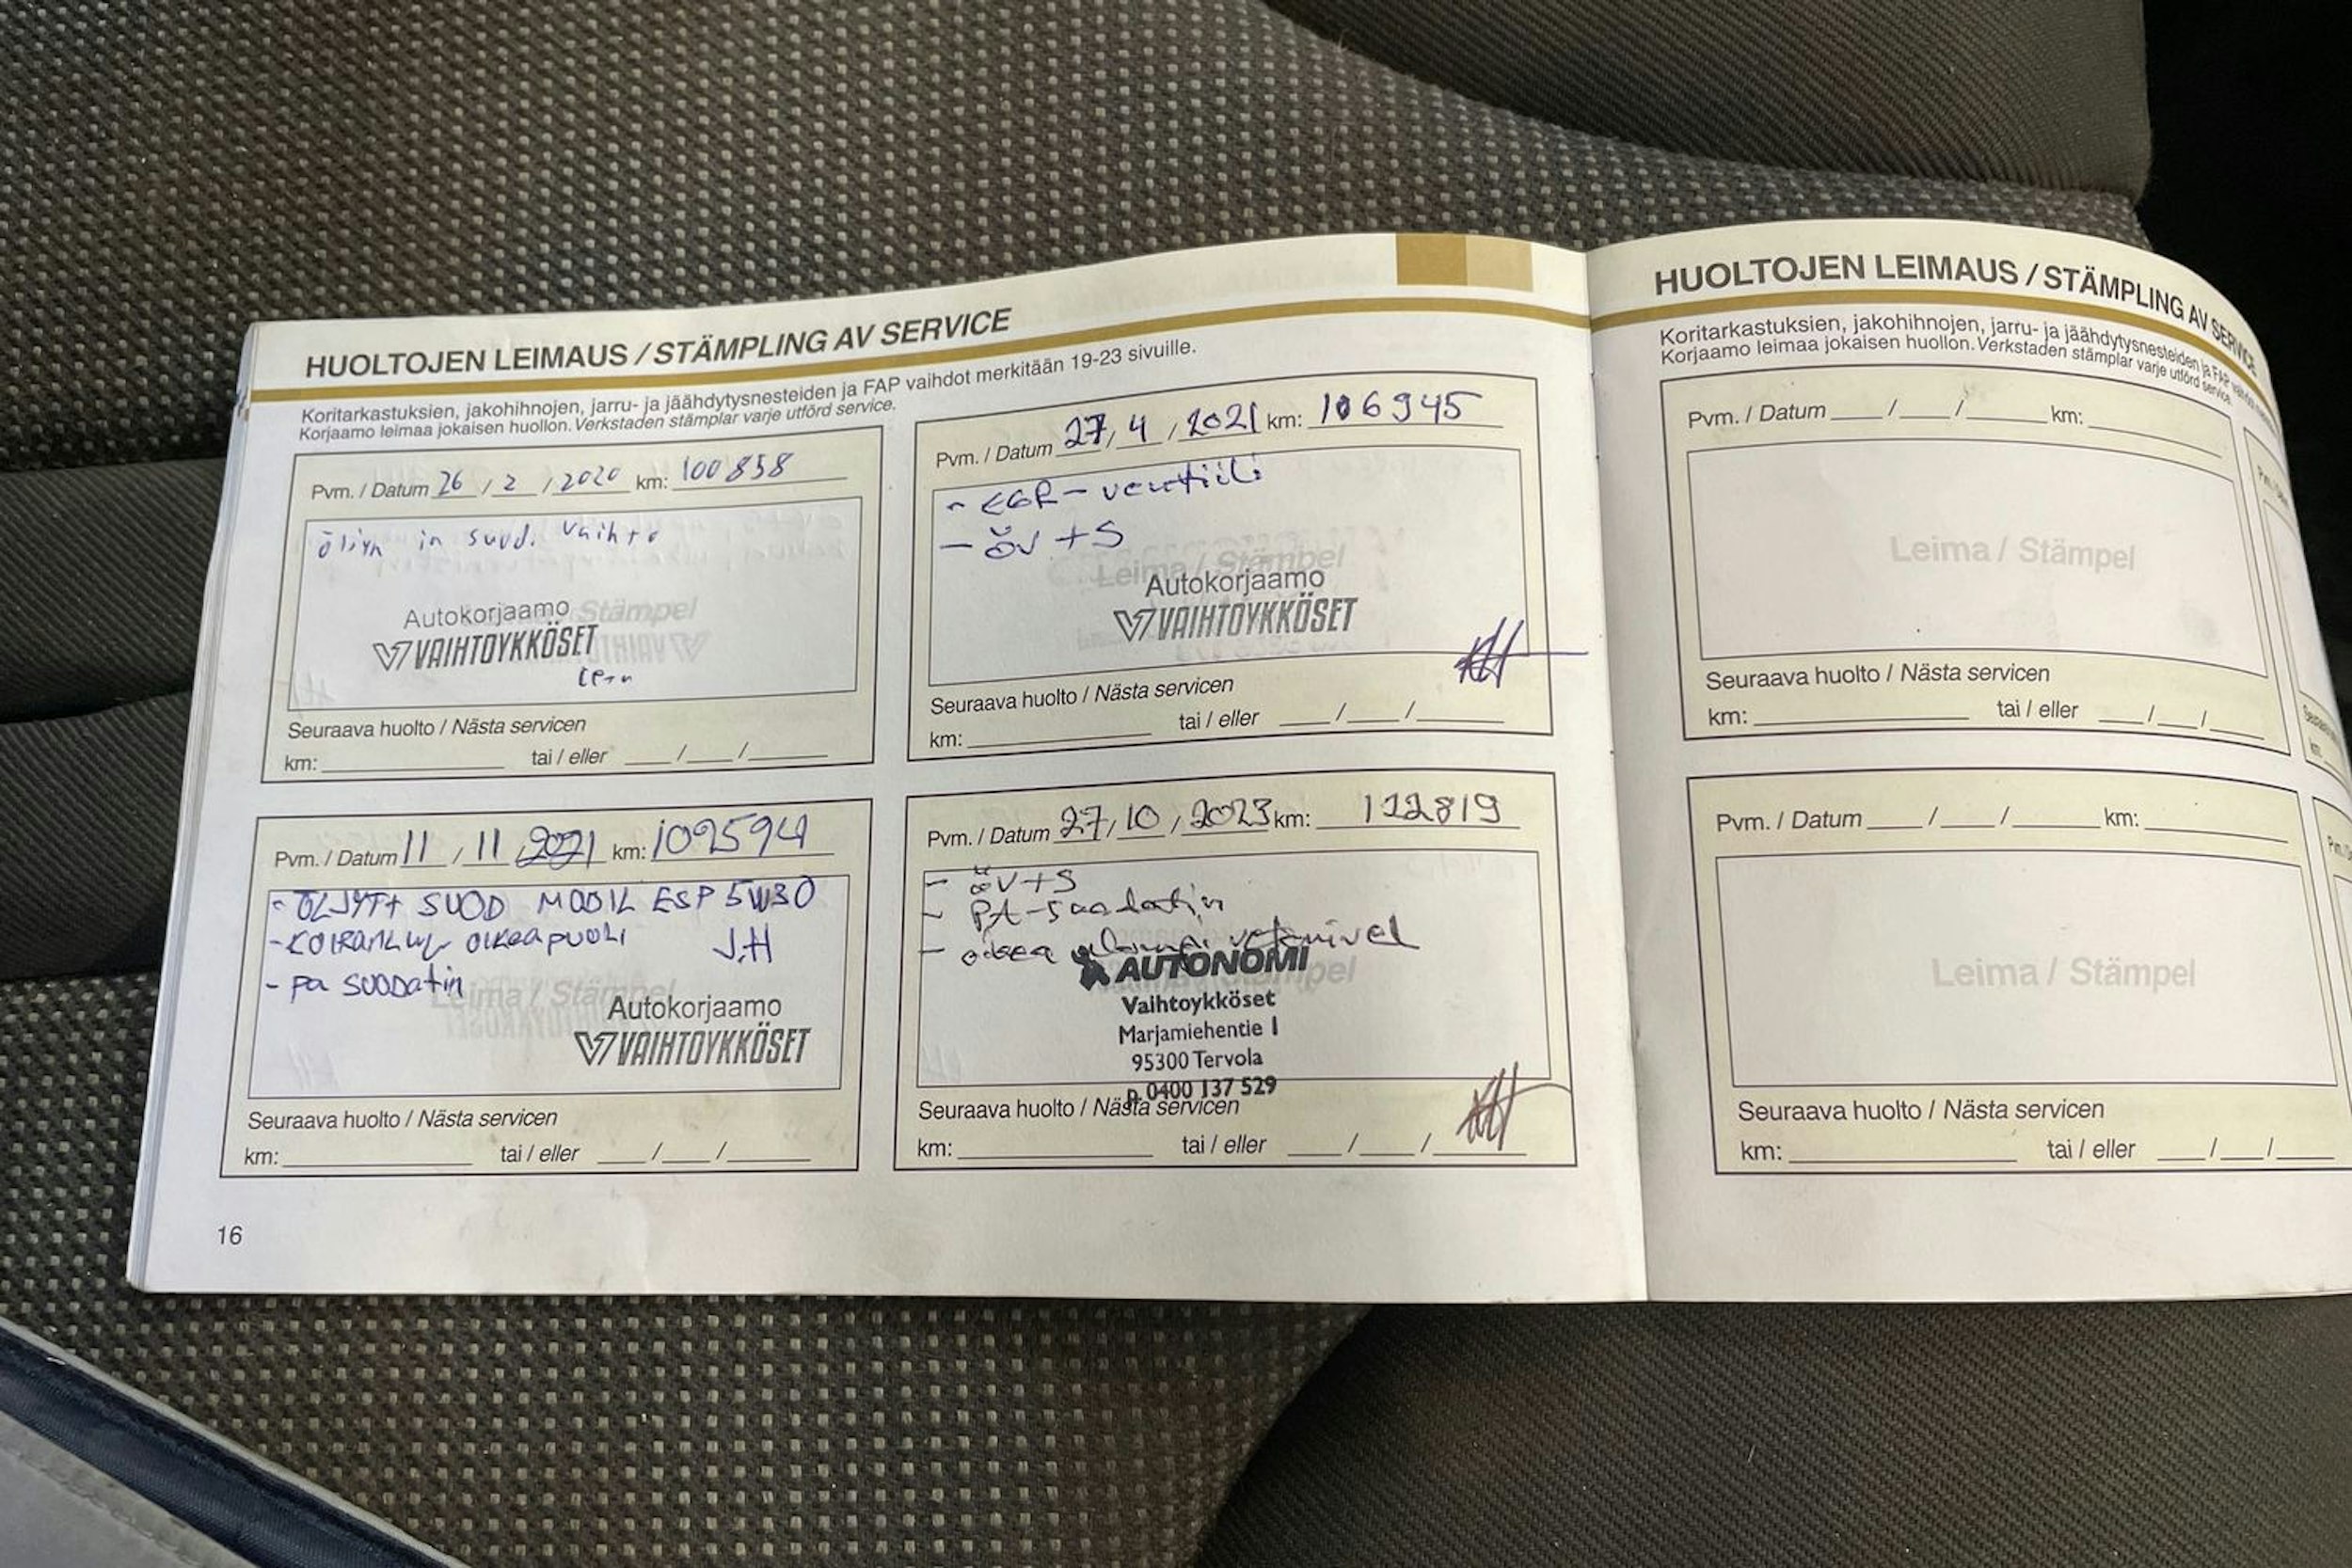 HUOLTOJEN LEIMAUS / STÄMPLING AV SERVICE
Koritarkastuksien, jakohihnojen, jarru- ja jäähdytysnesteiden ja FAP vaihdot merkitään 19-23 sivuille.
Korjaamo leimaa jokaisen huollon. Verkstaden stämplar varje utförd service.
Pvm. / Datum 26 / 2 / 2020 km: 100 858
öliyn in suod. vaihto
Stämpel
Autokorjaamo
VAIHTOYKKÖSET
Seuraava huolto / Nästa servicen
km: tai / eller / /
Pvm. / Datum 27 / 4 / 2021 km: 106945
- EGR-venttiili
- öv + S
Leima / Stämpel
Autokorjaamo
VAIHTOYKKÖSET
Seuraava huolto / Nästa servicen
km: tai / eller / /
Pvm. / Datum 11 / 11 / 2021 km: 109594
- ÖLJYT+ SUOD MOBIL ESP 5W30
- KOIRANLUU OIKEAPUOLI J.H
- PA SUODATIN
Leima / Stämpel
Autokorjaamo
VAIHTOYKKÖSET
Seuraava huolto / Nästa servicen
km: tai / eller / /
Pvm. / Datum 27 / 10 / 2023 km: 122819
- öv+S
- PA-suodatin
- oikea vetonivel
Stämpel
AUTONOMI
Vaihtoykköset
Marjamiehentie 1
95300 Tervola
p. 0400 137 529
Seuraava huolto / Nästa servicen
km: tai / eller / /
16
HUOLTOJEN LEIMAUS / STÄMPLING AV SERVICE
Koritarkastuksien, jakohihnojen, jarru- ja jäähdytysnesteiden ja FAP vaihdot
Korjaamo leimaa jokaisen huollon. Verkstaden stämplar varje utförd service.
Pvm. / Datum / / km:
Leima / Stämpel
Seuraava huolto / Nästa servicen
km: tai / eller / /
Pvm. / Datum / / km:
Leima / Stämpel
Seuraava huolto / Nästa servicen
km: tai / eller / /